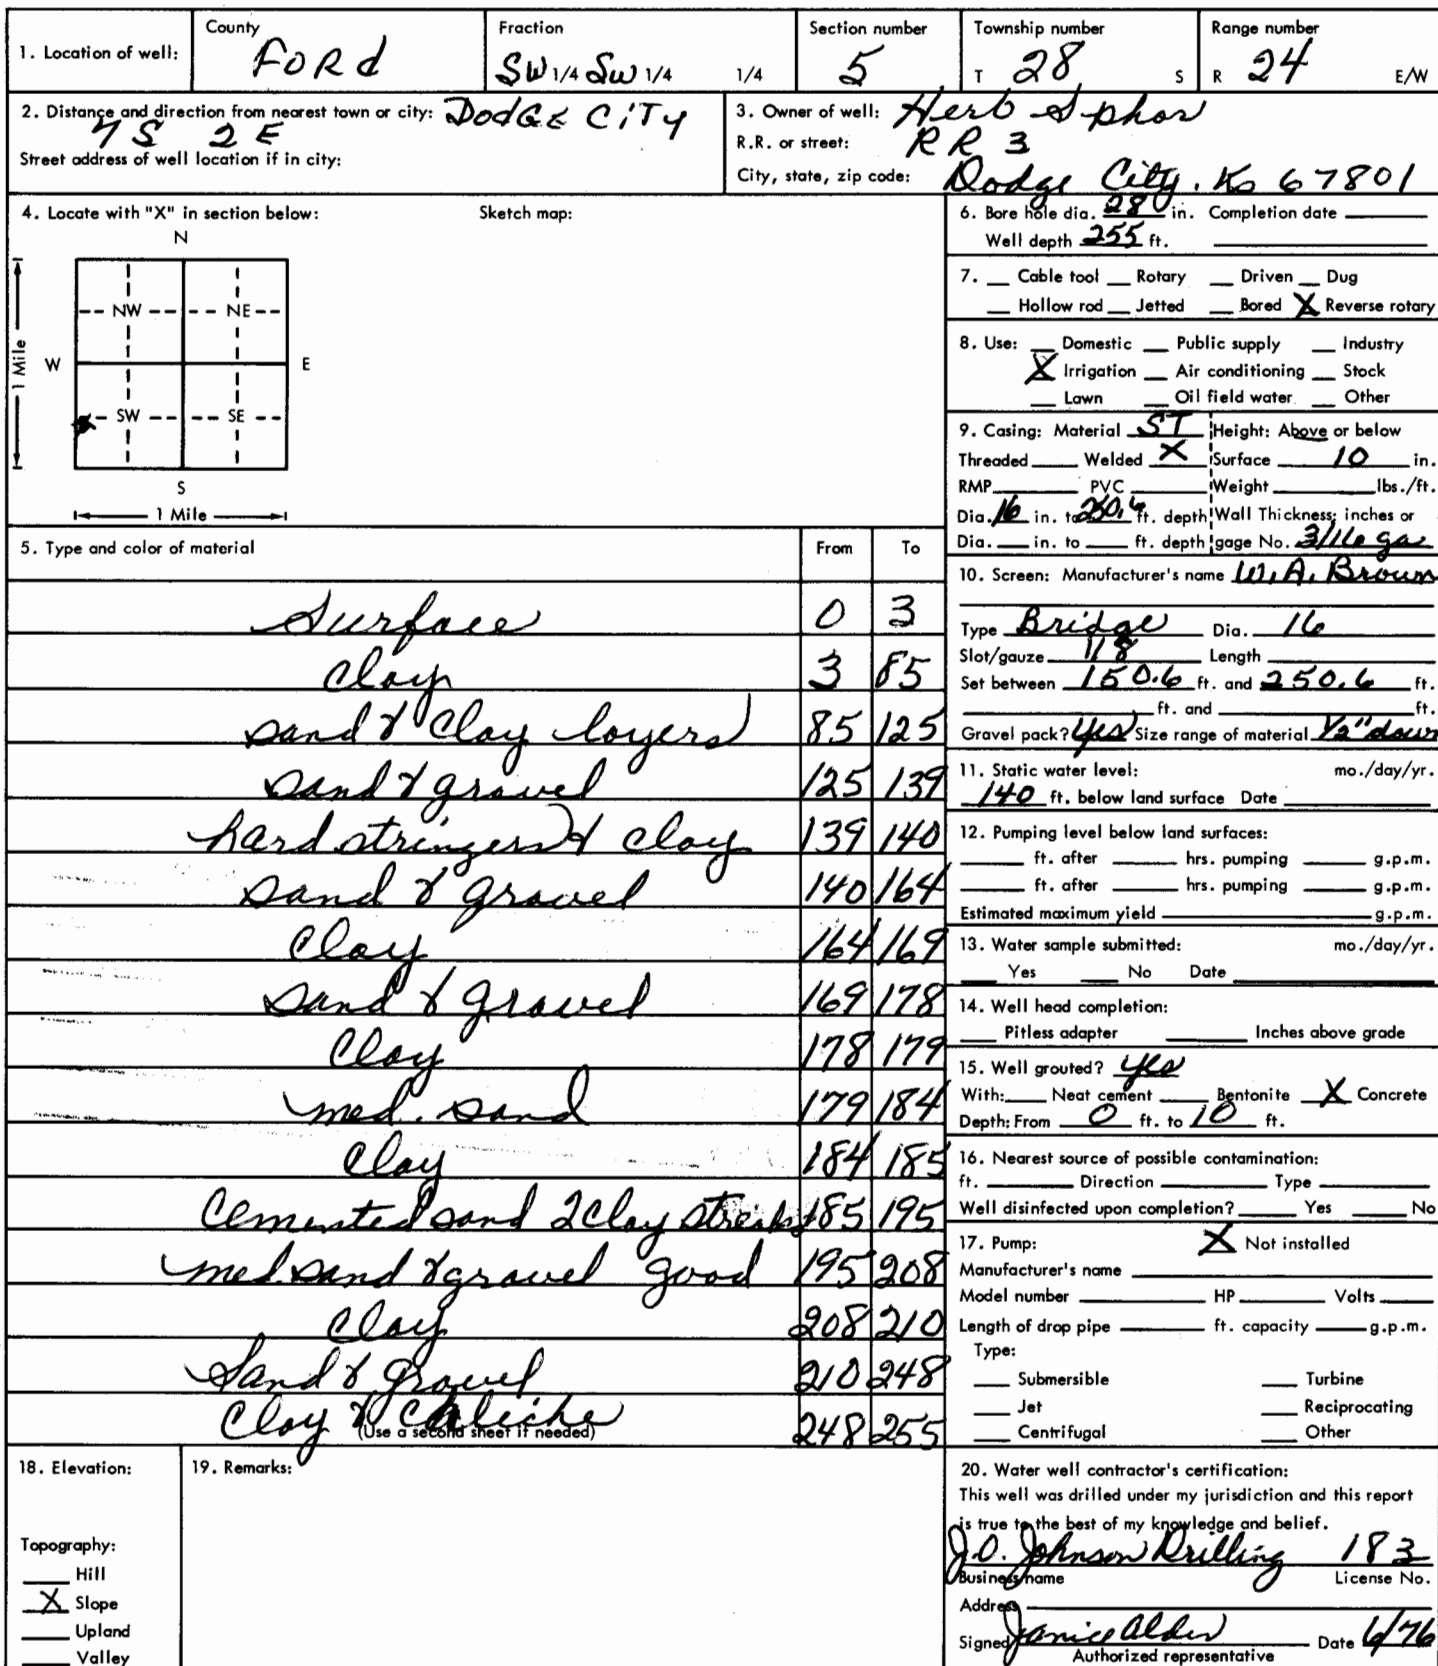 1. Location of well: County FORd Fraction SW 1/4 SW 1/4 1/4 Section number 5 Township number T 28 S Range number R 24 E/W
2. Distance and direction from nearest town or city: DODGE CITY
7 S 2 E
Street address of well location if in city:
3. Owner of well: Herb Sphar
R.R. or street: RR 3
City, state, zip code: Dodge City, Ks 67801
4. Locate with "X" in section below: Sketch map:
N
NW NE
W E
1 Mile
SW SE
S
1 Mile
5. Type and color of material From To
Surface 0 3
Clay 3 85
sand & Clay layers 85 125
sand & gravel 125 139
hard stringers & clay 139 140
sand & gravel 140 164
Clay 164 169
sand & gravel 169 178
Clay 178 179
med. sand 179 184
Clay 184 185
Cemented sand 2 Clay streaks 185 195
med. sand & gravel good 195 208
Clay 208 210
Sand & gravel 210 248
Clay & Caliche 248 255
(Use a second sheet if needed)
6. Bore hole dia. 28 in. Completion date
Well depth 255 ft.
7. Cable tool Rotary Driven Dug
Hollow rod Jetted Bored X Reverse rotary
8. Use: Domestic Public supply Industry
X Irrigation Air conditioning Stock
Lawn Oil field water Other
9. Casing: Material ST Height: Above or below
Threaded Welded X Surface 10 in.
RMP PVC Weight lbs./ft.
Dia. 16 in. to 250.6 ft. depth Wall Thickness: inches or
Dia. in. to ft. depth gage No. 3/16 ga
10. Screen: Manufacturer's name W.A. Brown
Type Bridge Dia. 16
Slot/gauze 1/8 Length
Set between 150.6 ft. and 250.6 ft.
ft. and ft.
Gravel pack? Yes Size range of material 1/2" down
11. Static water level: mo./day/yr.
140 ft. below land surface Date
12. Pumping level below land surfaces:
ft. after hrs. pumping g.p.m.
ft. after hrs. pumping g.p.m.
Estimated maximum yield g.p.m.
13. Water sample submitted: mo./day/yr.
Yes No Date
14. Well head completion:
Pitless adapter Inches above grade
15. Well grouted? yes
With: Neat cement Bentonite X Concrete
Depth: From 0 ft. to 10 ft.
16. Nearest source of possible contamination:
ft. Direction Type
Well disinfected upon completion? Yes No
17. Pump: X Not installed
Manufacturer's name
Model number HP Volts
Length of drop pipe ft. capacity g.p.m.
Type:
Submersible Turbine
Jet Reciprocating
Centrifugal Other
18. Elevation:
Topography:
Hill
X Slope
Upland
Valley
19. Remarks:
20. Water well contractor's certification:
This well was drilled under my jurisdiction and this report
is true to the best of my knowledge and belief.
J.O. Johnson Drilling 183
Business name License No.
Address
Signed Janice Alder Date 6/76
Authorized representative